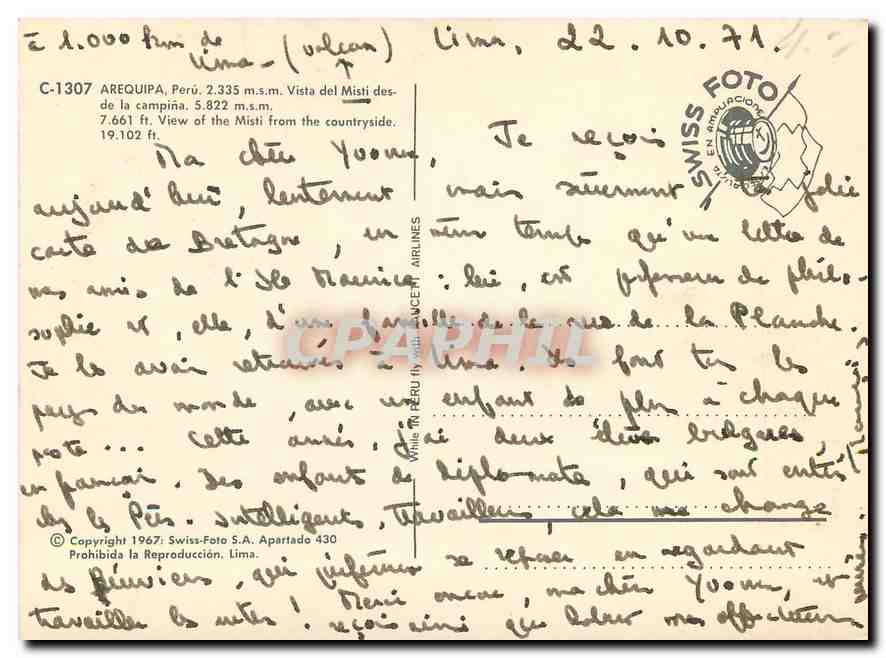 à 1.000 km de
Lima - (volcan)
Lima, 22.10.71.
C-1307 AREQUIPA, Perú. 2.335 m.s.m. Vista del Misti des-
de la campiña. 5.822 m.s.m.
7.661 ft. View of the Misti from the countryside.
19.102 ft.
SWISS FOTO
EN AMPLIACIONES
Ma chère Yvonne, Je reçois
aujourd'hui, lentement mais sûrement ta jolie
carte de Bretagne, en même temps qu'une lettre de
mes amis de l'Ile Maurice : lui, est professeur de philo-
sophie et, elle, d'une famille de la rue de la Planche.
Je les avais retrouvés à Lima. Ils font tous les
pays du monde, avec un enfant de plus à chaque
poste... Cette année, j'ai deux élèves bulgares,
en français. Des enfants de diplomates, qui sont entrés
chez les Pères. Intelligents, travailleurs, cela me change
des Péruviens, qui préfèrent se reposer en regardant
travailler les autres! Merci encore, ma chère Yvonne, et
reçois ainsi que mes affectueux
While IN PERU fly with FAUCETT AIRLINES
© Copyright 1967: Swiss-Foto S.A. Apartado 430
Prohibida la Reproducción. Lima.
CPAPHIL